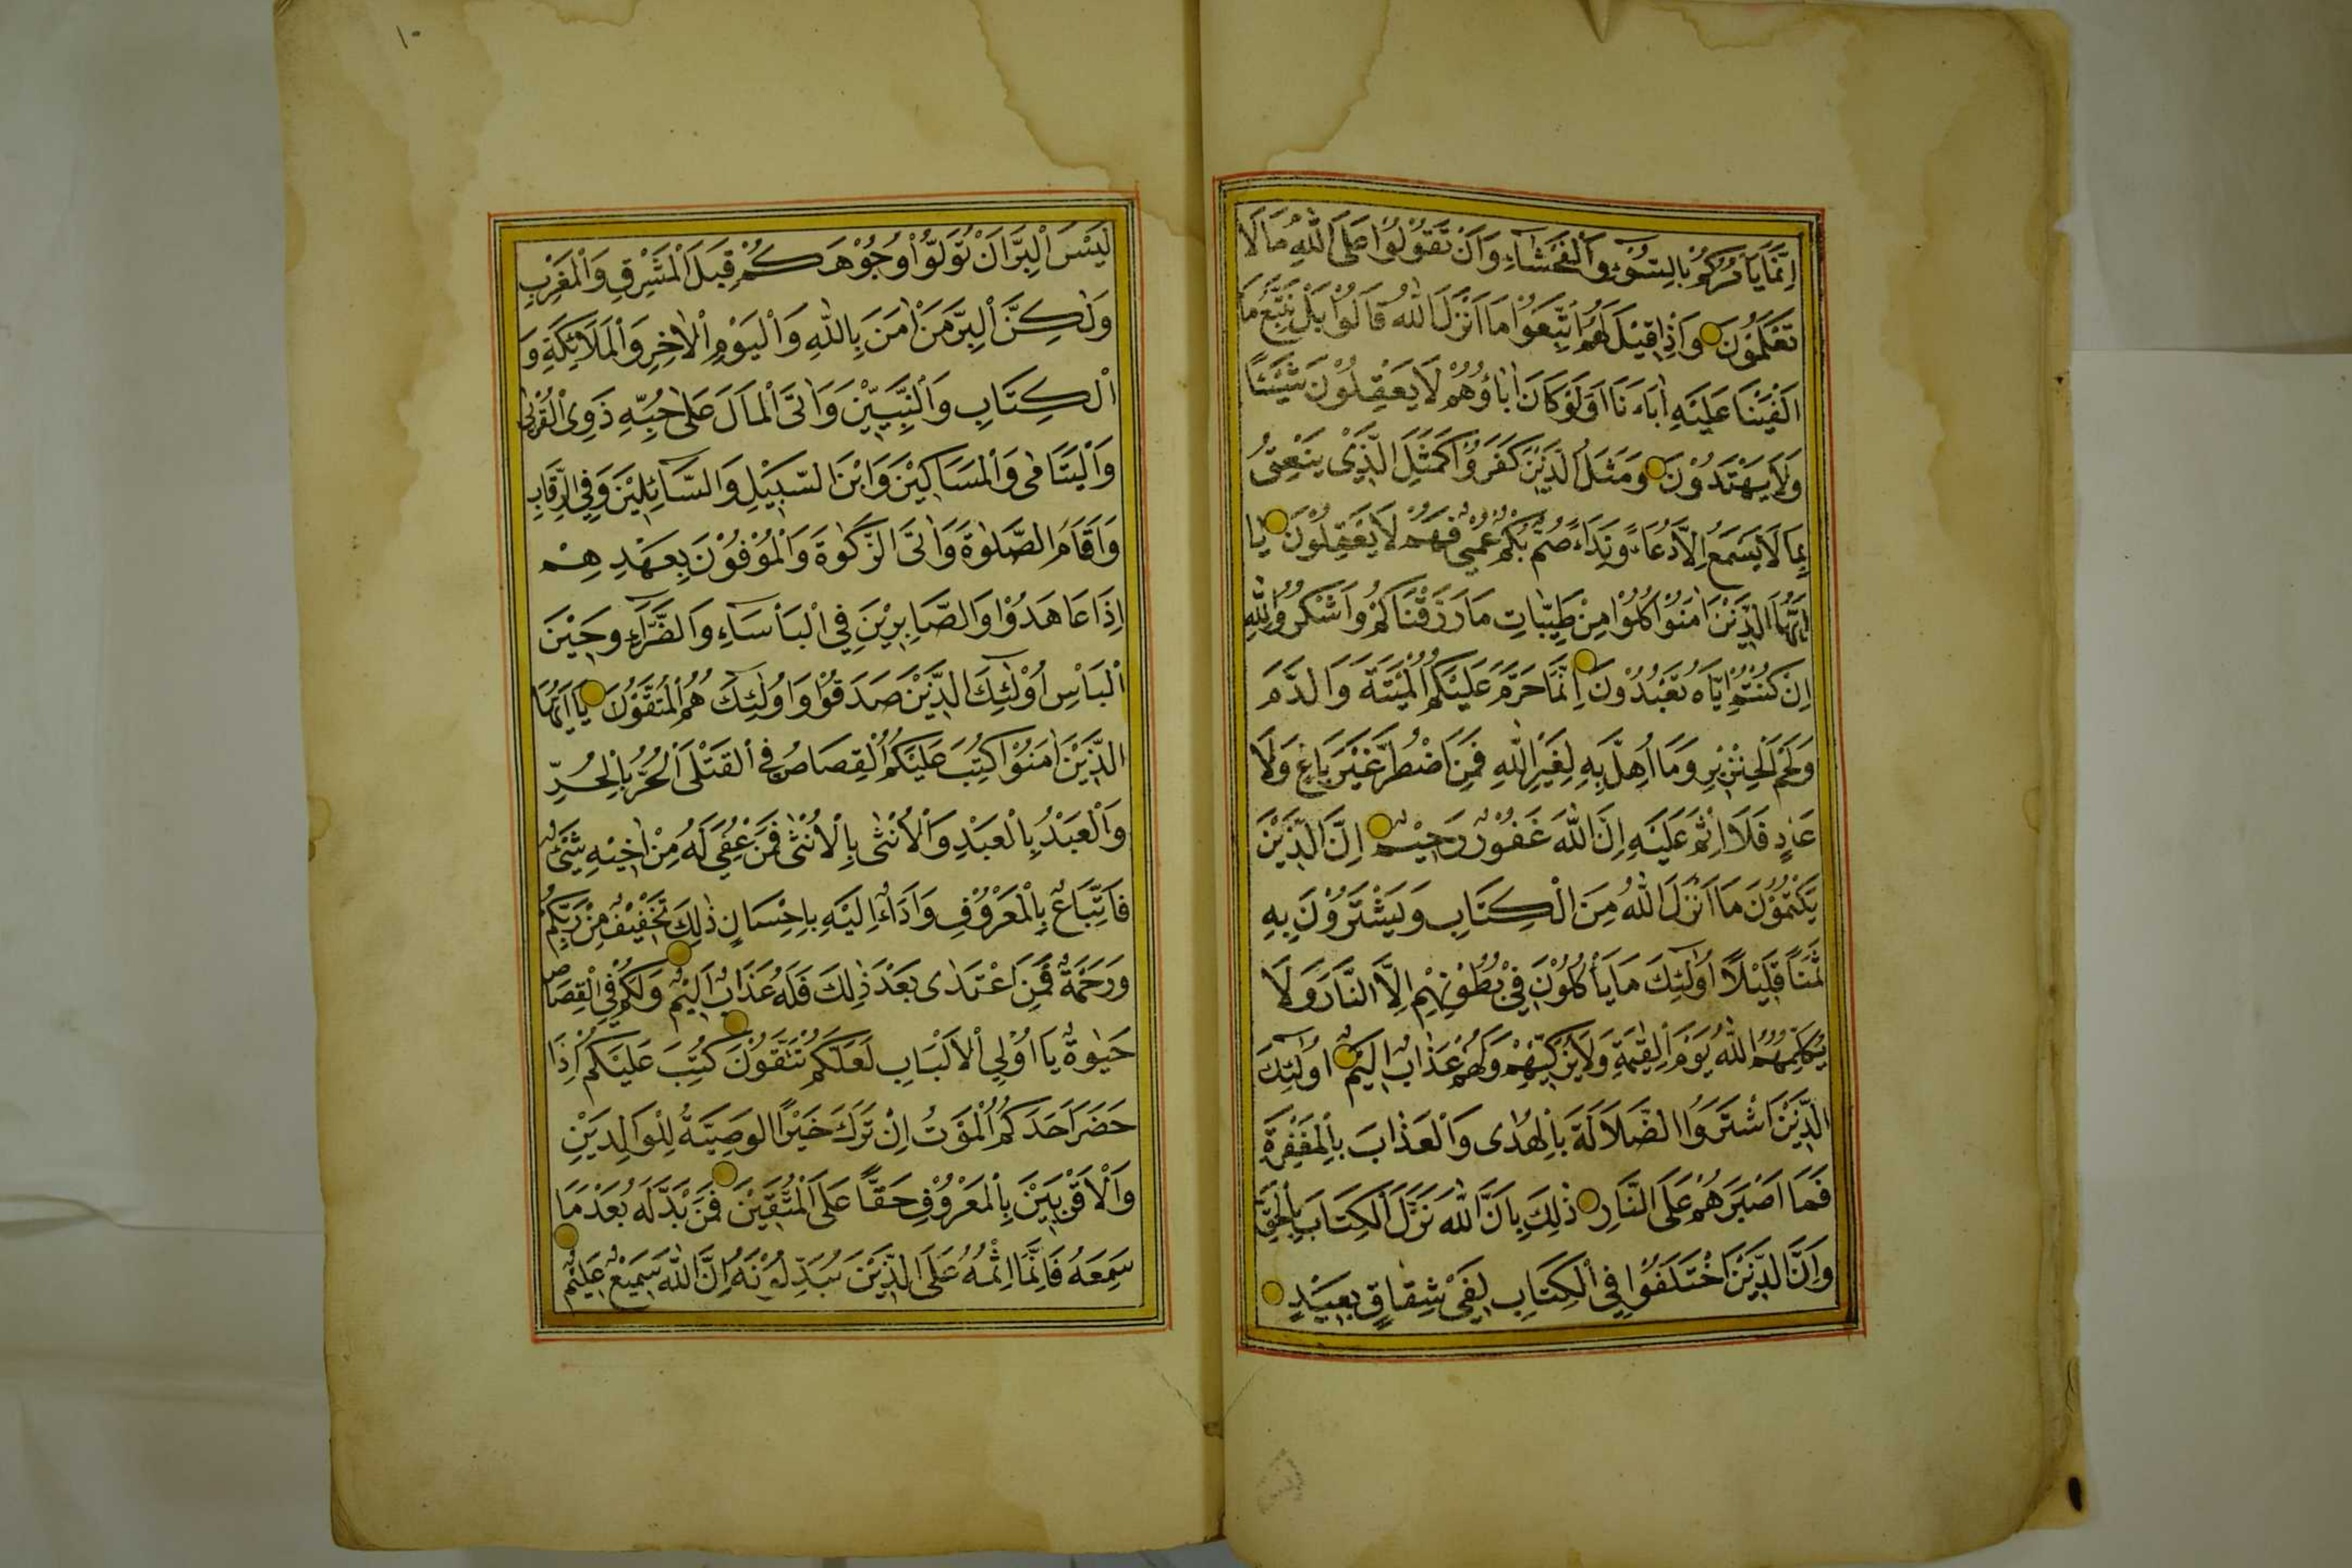 اِنَّمَا يَأْمُرُكُمْ بِالسُّوءِ وَالْفَحْشَاءِ وَاَنْ تَقُولُوا عَلَى اللهِ مَا لَا
تَعْلَمُونَ وَاِذَا قِيْلَ لَهُمُ اتَّبِعُوْا مَا اَنْزَلَ اللهُ قَالُوْا بَلْ نَتَّبِعُ مَا
اَلْفَيْنَا عَلَيْهِ اٰبَاءَنَا اَوَلَوْ كَانَ اٰبَاؤُهُمْ لَا يَعْقِلُوْنَ شَيْئًا
وَلَا يَهْتَدُوْنَ وَمَثَلُ الَّذِيْنَ كَفَرُوْا كَمَثَلِ الَّذِيْ يَنْعِقُ
بِمَا لَا يَسْمَعُ اِلَّا دُعَاءً وَنِدَاءً صُمٌّ بُكْمٌ عُمْيٌ فَهُمْ لَا يَعْقِلُوْنَ يَا
اَيُّهَا الَّذِيْنَ اٰمَنُوْا كُلُوْا مِنْ طَيِّبَاتِ مَا رَزَقْنَاكُمْ وَاشْكُرُوا لِلّٰهِ
اِنْ كُنْتُمْ اِيَّاهُ تَعْبُدُوْنَ اِنَّمَا حَرَّمَ عَلَيْكُمُ الْمَيْتَةَ وَالدَّمَ
وَلَحْمَ الْخِنْزِيْرِ وَمَا اُهِلَّ بِهِ لِغَيْرِ اللهِ فَمَنِ اضْطُرَّ غَيْرَ بَاغٍ وَلَا
عَادٍ فَلَا اِثْمَ عَلَيْهِ اِنَّ اللهَ غَفُوْرٌ رَحِيْمٌ اِنَّ الَّذِيْنَ
يَكْتُمُوْنَ مَا اَنْزَلَ اللهُ مِنَ الْكِتَابِ وَيَشْتَرُوْنَ بِهِ
ثَمَنًا قَلِيْلًا اُولٰٓئِكَ مَا يَأْكُلُوْنَ فِيْ بُطُوْنِهِمْ اِلَّا النَّارَ وَلَا
يُكَلِّمُهُمُ اللهُ يَوْمَ الْقِيٰمَةِ وَلَا يُزَكِّيْهِمْ وَلَهُمْ عَذَابٌ اَلِيْمٌ اُولٰٓئِكَ
الَّذِيْنَ اشْتَرَوُا الضَّلَالَةَ بِالْهُدٰى وَالْعَذَابَ بِالْمَغْفِرَةِ
فَمَا اَصْبَرَهُمْ عَلَى النَّارِ ذٰلِكَ بِاَنَّ اللهَ نَزَّلَ الْكِتَابَ بِالْحَقِّ
وَاِنَّ الَّذِيْنَ اخْتَلَفُوْا فِي الْكِتَابِ لَفِيْ شِقَاقٍ بَعِيْدٍ
١٠
لَيْسَ الْبِرَّ اَنْ تُوَلُّوْا وُجُوْهَكُمْ قِبَلَ الْمَشْرِقِ وَالْمَغْرِبِ
وَلٰكِنَّ الْبِرَّ مَنْ اٰمَنَ بِاللهِ وَالْيَوْمِ الْاٰخِرِ وَالْمَلَائِكَةِ وَ
الْكِتَابِ وَالنَّبِيّٖنَ وَاٰتَى الْمَالَ عَلٰى حُبِّهٖ ذَوِي الْقُرْبٰى
وَالْيَتَامٰى وَالْمَسَاكِيْنَ وَابْنَ السَّبِيْلِ وَالسَّآئِلِيْنَ وَفِي الرِّقَابِ
وَاَقَامَ الصَّلٰوةَ وَاٰتَى الزَّكٰوةَ وَالْمُوْفُوْنَ بِعَهْدِهِمْ
اِذَا عَاهَدُوْا وَالصَّابِرِيْنَ فِي الْبَأْسَاءِ وَالضَّرَّاءِ وَحِيْنَ
الْبَأْسِ اُولٰٓئِكَ الَّذِيْنَ صَدَقُوْا وَاُولٰٓئِكَ هُمُ الْمُتَّقُوْنَ يَا اَيُّهَا
الَّذِيْنَ اٰمَنُوْا كُتِبَ عَلَيْكُمُ الْقِصَاصُ فِي الْقَتْلٰى اَلْحُرُّ بِالْحُرِّ
وَالْعَبْدُ بِالْعَبْدِ وَالْاُنْثٰى بِالْاُنْثٰى فَمَنْ عُفِيَ لَهُ مِنْ اَخِيْهِ شَيْئٌ
فَاتِّبَاعٌ بِالْمَعْرُوْفِ وَاَدَاءٌ اِلَيْهِ بِاِحْسَانٍ ذٰلِكَ تَخْفِيْفٌ مِنْ رَبِّكُمْ
وَرَحْمَةٌ فَمَنِ اعْتَدٰى بَعْدَ ذٰلِكَ فَلَهُ عَذَابٌ اَلِيْمٌ وَلَكُمْ فِي الْقِصَاصِ
حَيٰوةٌ يَا اُوْلِي الْاَلْبَابِ لَعَلَّكُمْ تَتَّقُوْنَ كُتِبَ عَلَيْكُمْ اِذَا
حَضَرَ اَحَدَكُمُ الْمَوْتُ اِنْ تَرَكَ خَيْرًا الْوَصِيَّةُ لِلْوَالِدَيْنِ
وَالْاَقْرَبِيْنَ بِالْمَعْرُوْفِ حَقًّا عَلَى الْمُتَّقِيْنَ فَمَنْ بَدَّلَهُ بَعْدَ مَا
سَمِعَهُ فَاِنَّمَا اِثْمُهُ عَلَى الَّذِيْنَ يُبَدِّلُوْنَهُ اِنَّ اللهَ سَمِيْعٌ عَلِيْمٌ